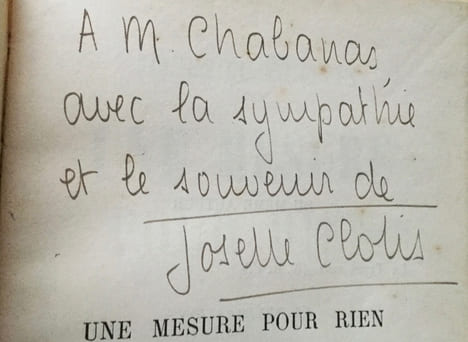 A M. Chabanas,
avec la sympathie
et le souvenir de
Joselle Clotis
UNE MESURE POUR RIEN